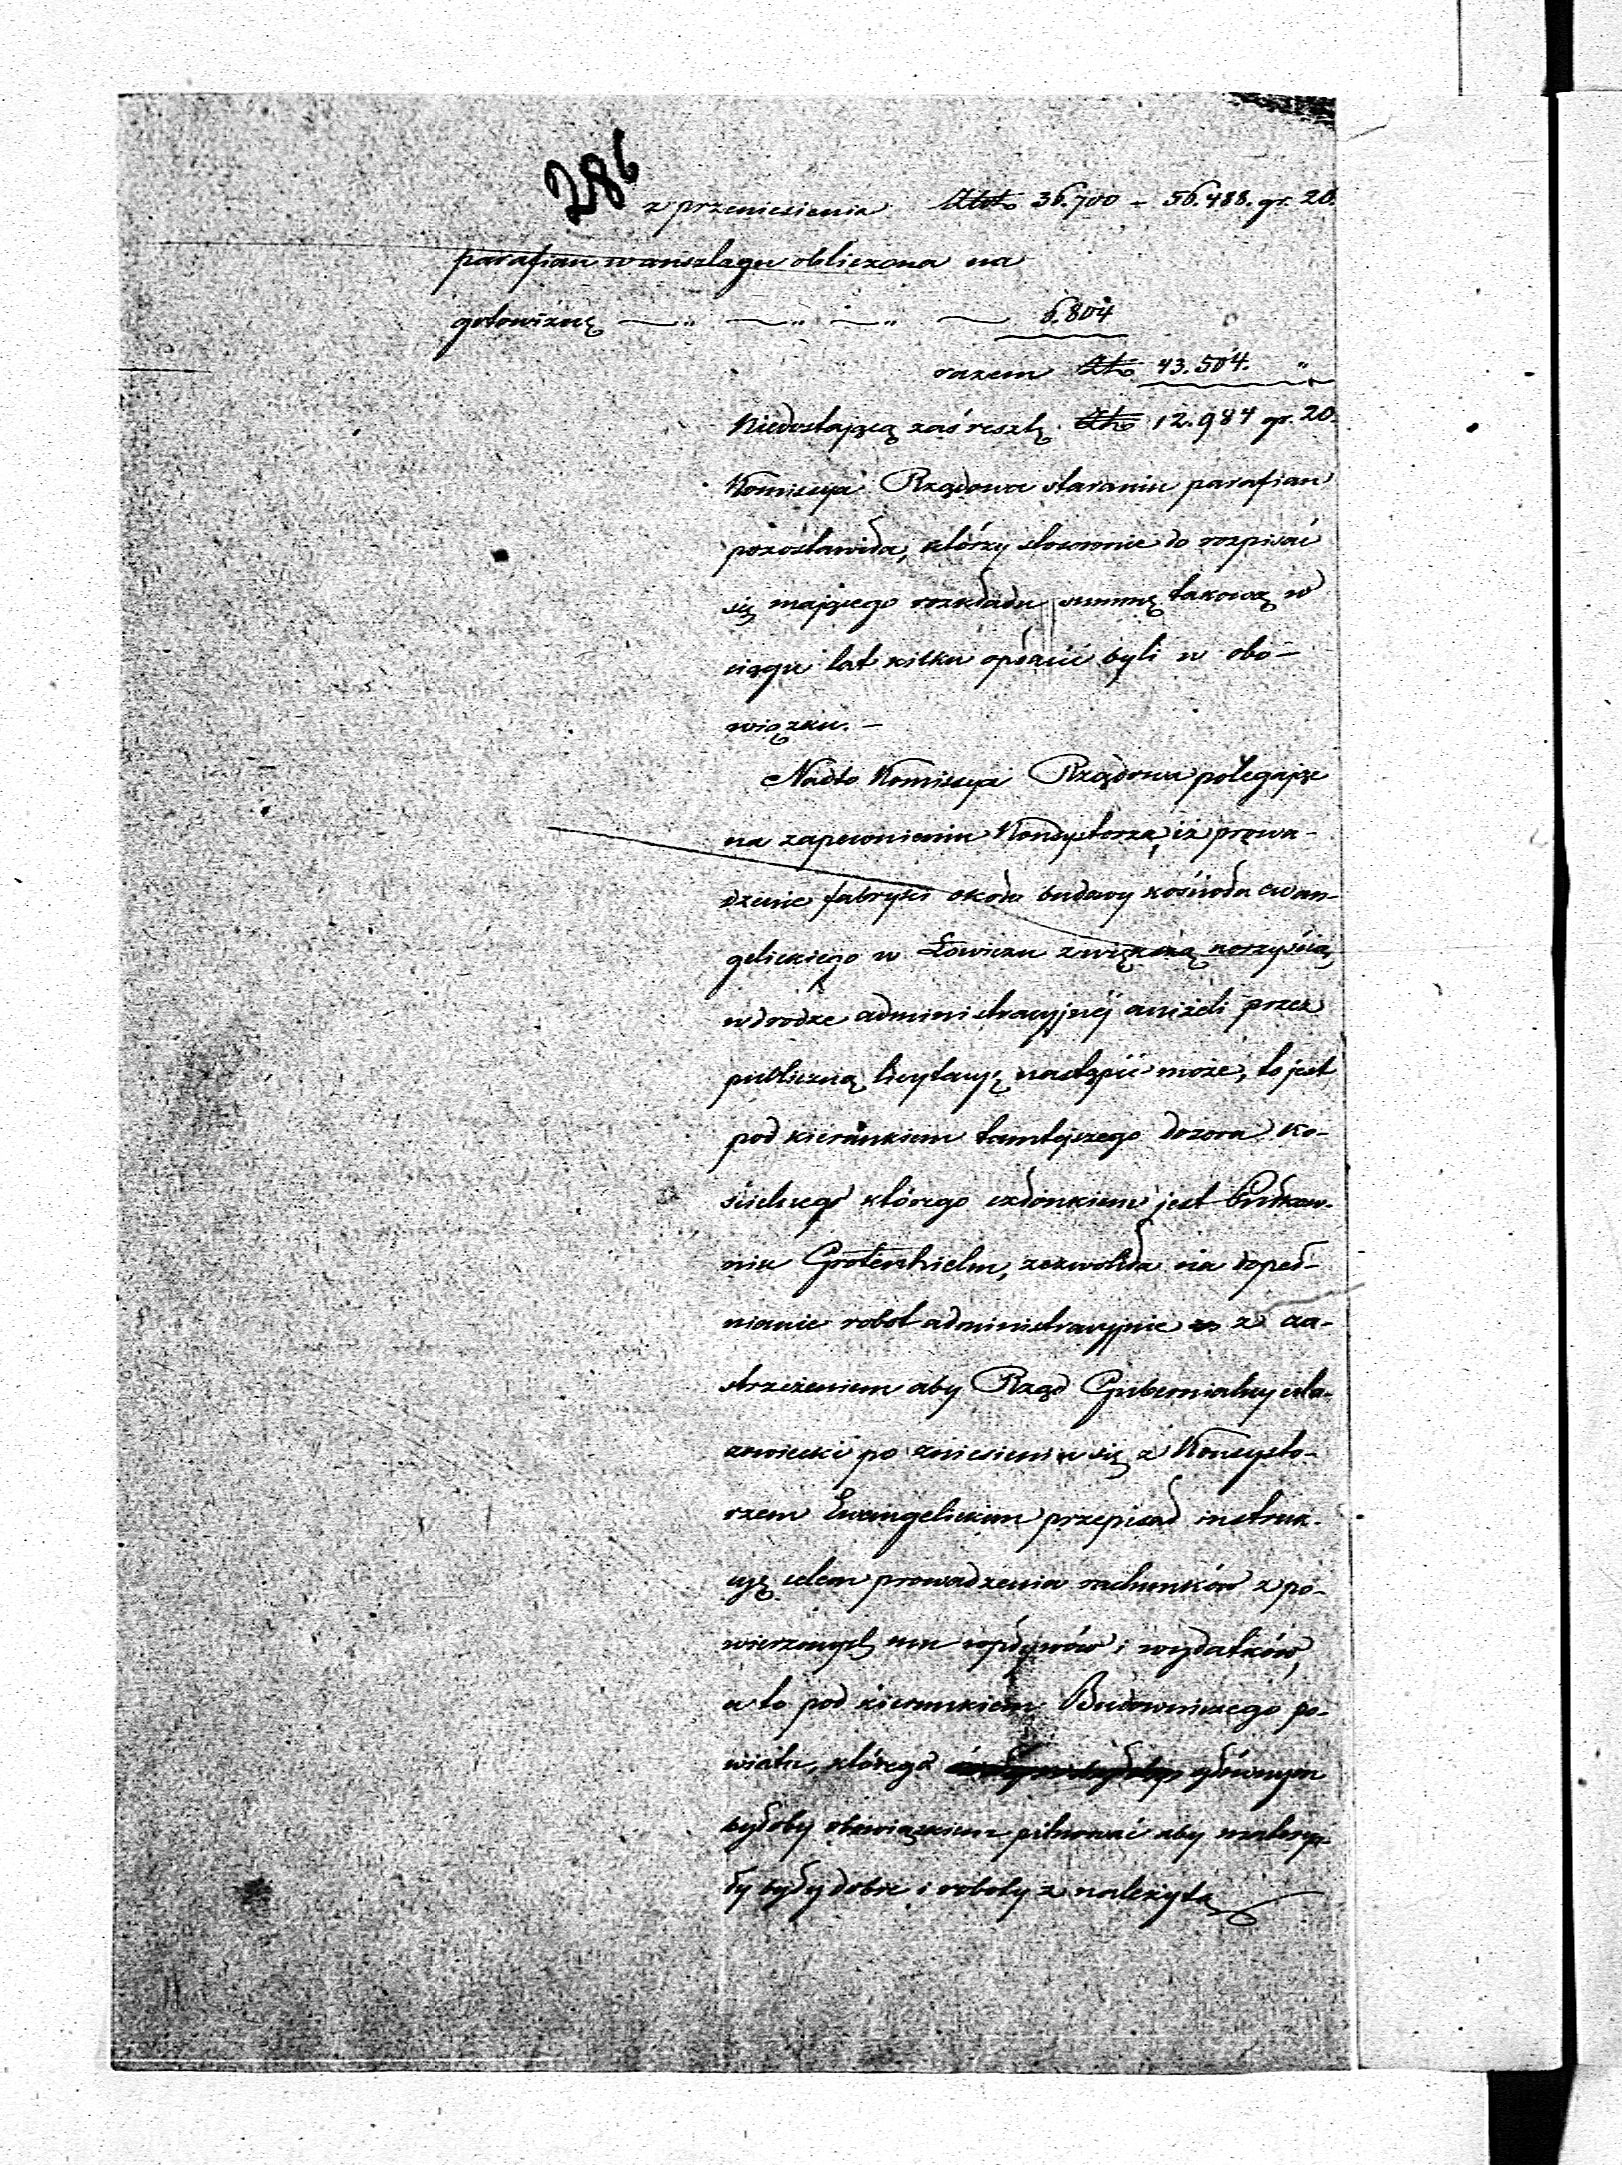 286
z przeniesienia Złot. 36.700 - 56.488. gr. 20.
parafian w anszlagu obliczona na
gotowiznę 6.804
razem Złt. 43.504. "
Niedostającą zaś resztę Złt. 12.984 gr. 20.
Komissya Rządowa staraniu parafian
pozostawiła, którzy stosownie do rozpisać
się mającego rozkładu summę takową w
ciągu lat kilku opłacić byli w obo-
wiązku. -
Nadto Komissya Rządowa polegając
na zapewnieniu Konsystorza, iż prowa-
dzenie fabryki około budowy kościoła ewan-
gelickiego w Łowiczu z większą korzyścią
w drodze administracyjnéj aniżeli przez
publiczną licytacyę nastąpić może, to jest
pod kierunkiem tamtejszego dozoru ko-
ścielnego którego członkiem jest Pułkow-
nik Grotenhielm, zezwoliła na dopeł-
nianie robót administracyjnie z za-
strzeżeniem aby Rząd Gubernialny Ma-
zowiecki po zniesieniu się z Konsysto-
rzem Ewangelickim przepisał instruk-
cyę celem prowadzenia rachunków z po-
wierzonych mu wpływów i wydatków,
a to pod kierunkiem Budowniczego po-
wiatu, którego głównym
byłoby obowiązkiem pilnować aby materya-
ły były dobre i roboty z należytą